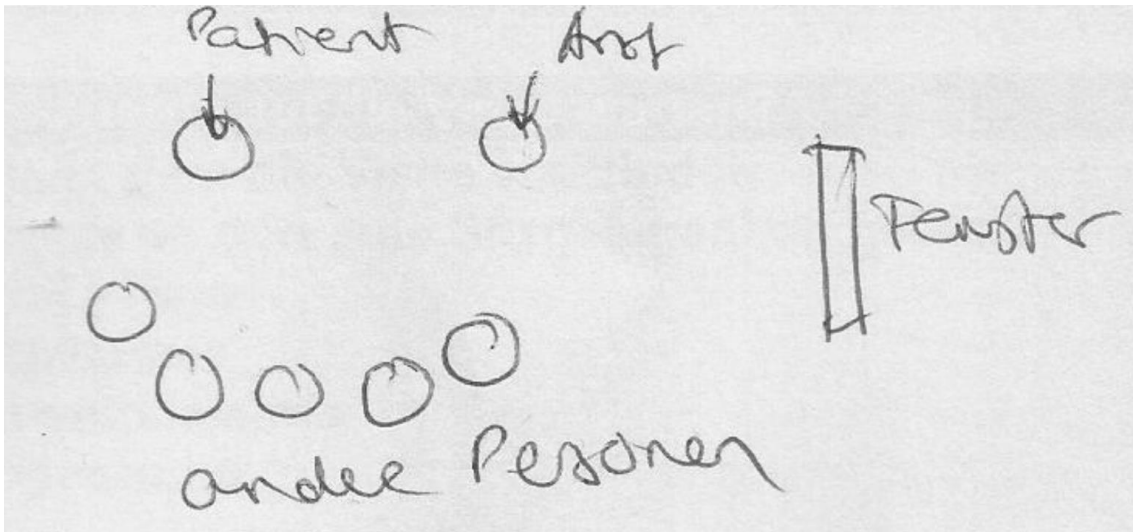 Patient Arzt
Fenster
andere Personen